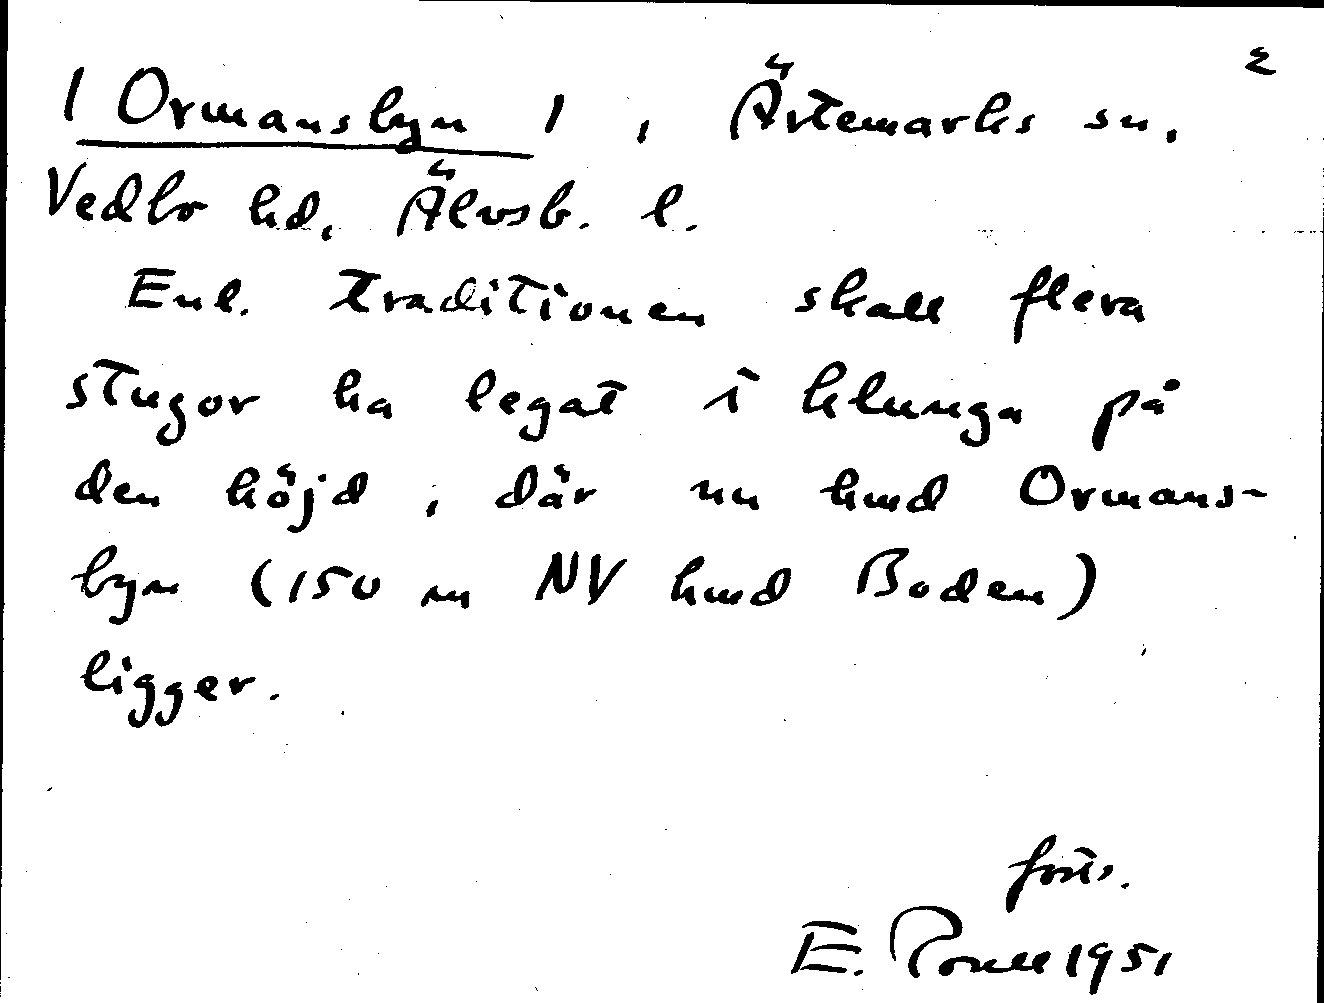 2
/ Ormansbyn / , Ärtemarks sn.
Vedbo hd, Älvsb. l.
Enl. traditionen skall flera
stugor ha legat i klunga på
den höjd, där nu hmd Ormans-
byn (150 m NV hmd Boden)
ligger.
forts.
E. 1951